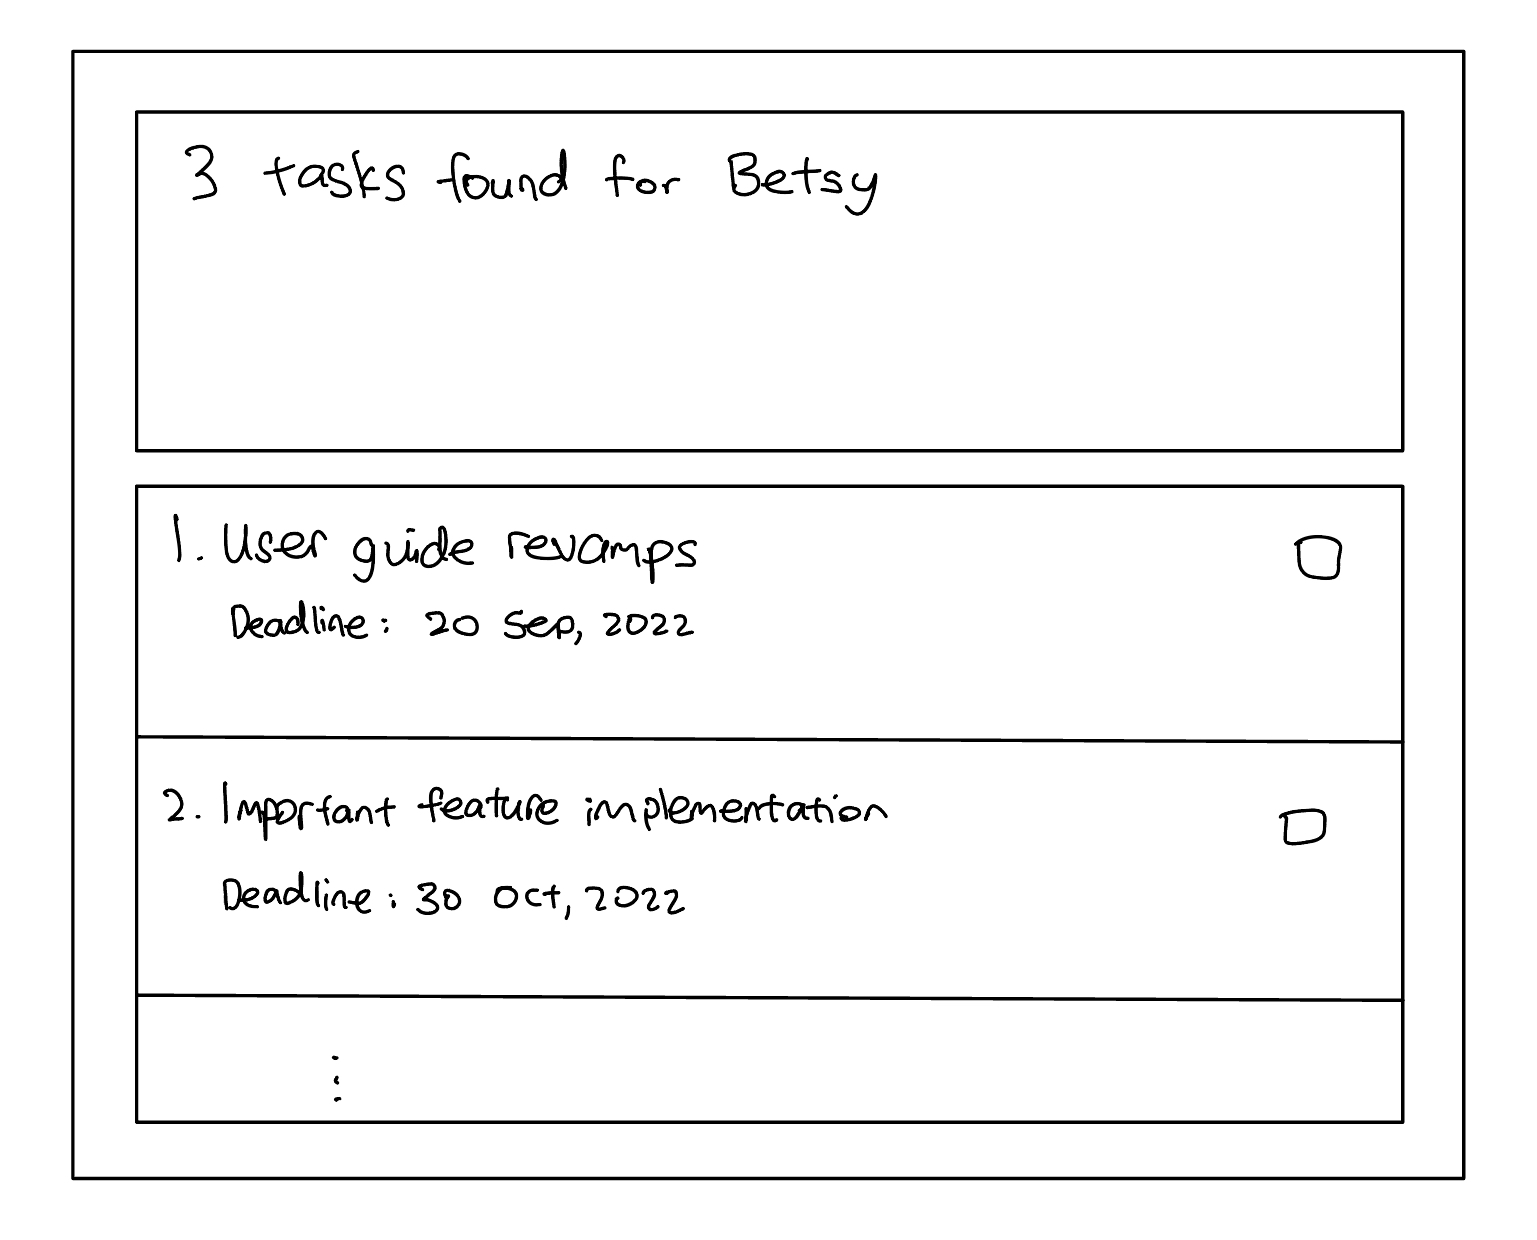 3 tasks found for Betsy
1. User guide revamps
Deadline: 20 Sep, 2022
2. Important feature implementation
Deadline: 30 Oct, 2022
⋮